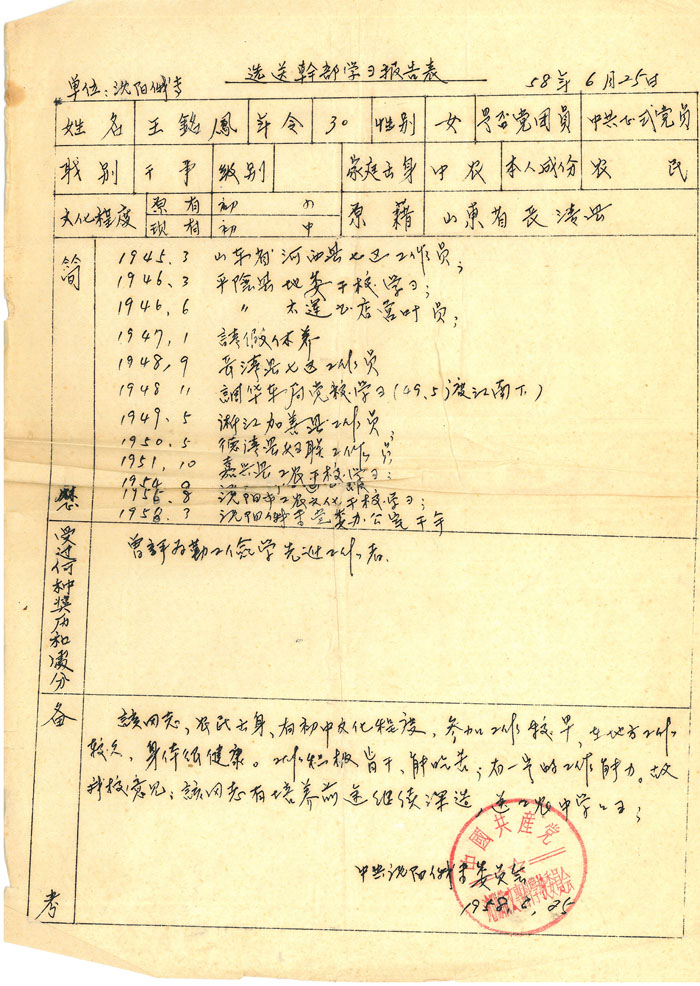 选送幹部学习报告表
单位:沈阳俄专 58年6月25日
姓名 王銘鳳 年令 30 性别 女 是否党团员 中共正式党员
职别 干事 级别 家庭出身 中农 本人成份 农民
文化程度 原有 初小 原籍 山东省長清县
现有 初中
简歷
1945.3 山东省河西县七区工作员;
1946.3 平陰县地委干校学习;
1946.6 〃 大莲书店营叶员;
1947,1 請假休养
1948,9 長清县七区工作员
1948 11 調华东局党校学习(49.5)渡江南下)
1949.5 浙江加善县工作员;
1950.5 德清县妇联工作员;
1951,10 嘉兴县工农干校学习;
1954
1956.8 沈阳市工农文化干校学习;
1958.3 沈阳俄专党委办公室干事
受过何种奖历和处分
曾評为勤工俭学先进工作者.
备考
該同志,农民出身、有初中文化程度,参加工作较早,在地方工作
较久,身体很健康。工作积极肯干、能吃苦;有一定的工作能力。故
我校意见:該同志有培养前途继续深造,送工农中学学习;
中共沈阳俄专委员会
1958.6.25
中國共產党